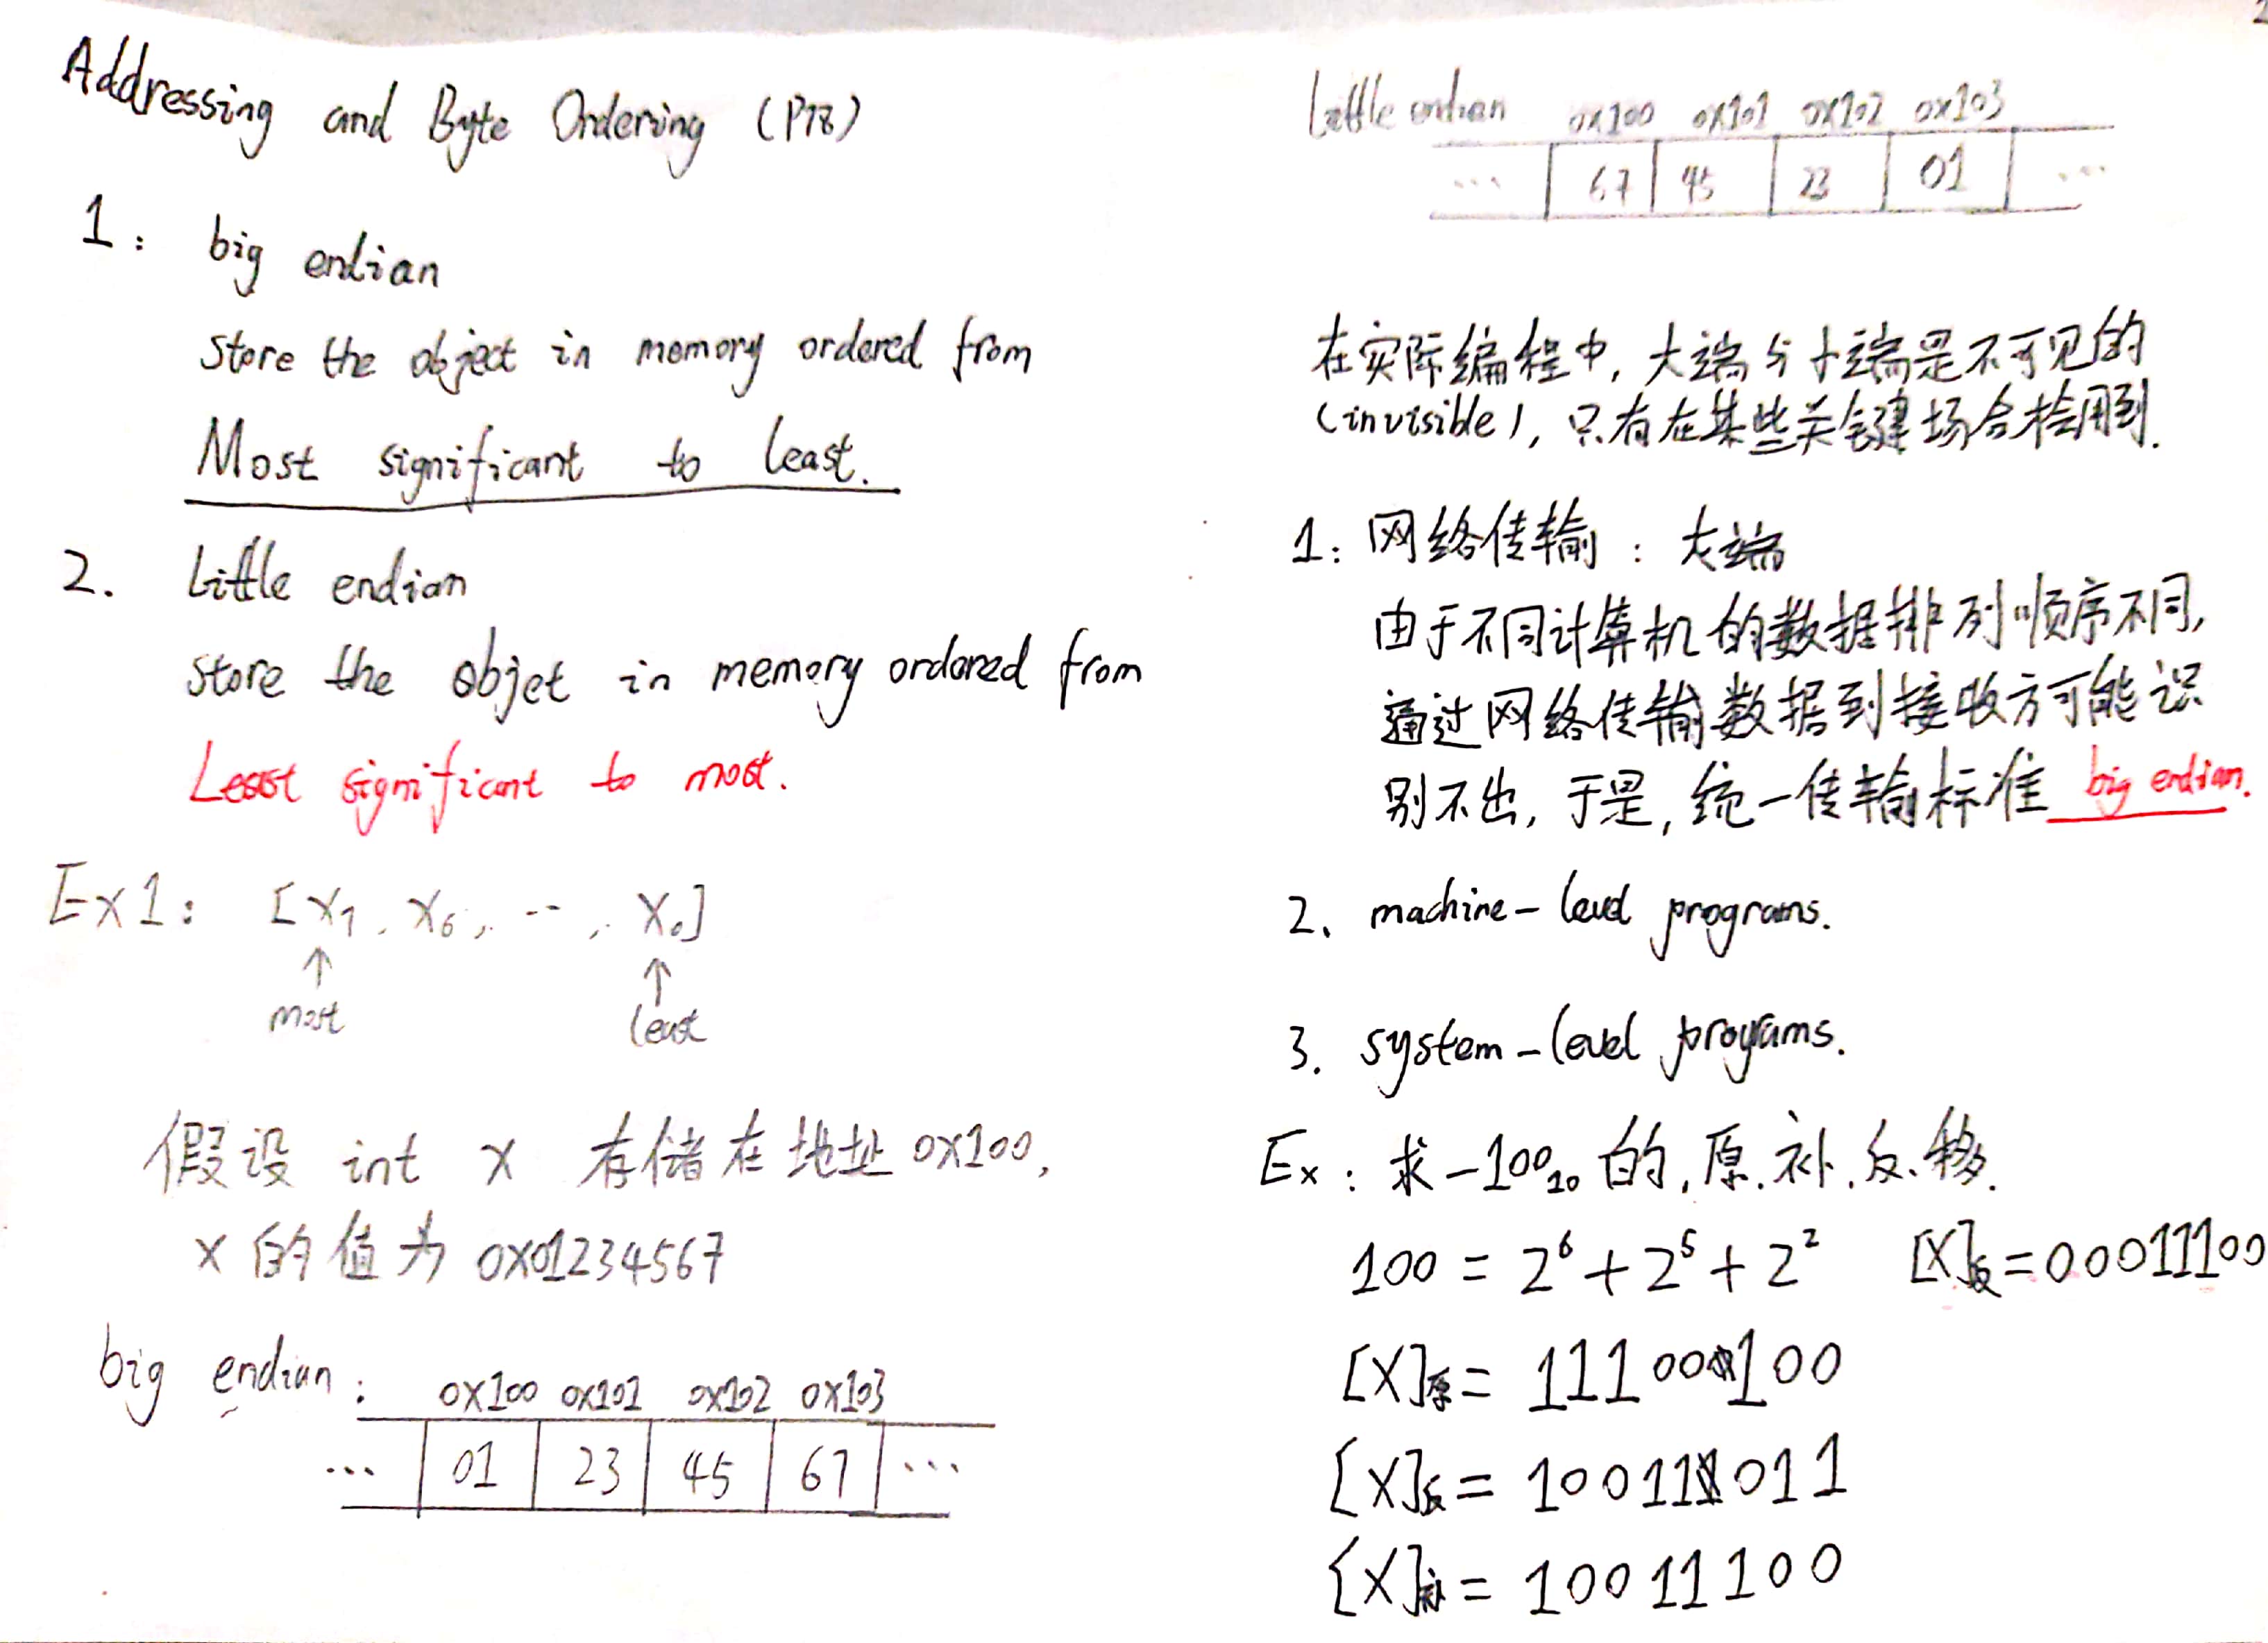 Addressing and Byte Ordering (P78)
1: big endian
store the object in memory ordered from
Most significant to least.
2. Little endian
store the objet in memory ordered from
Least significant to most.
Ex1: [X7, X6, ..., X0]
↑ ↑
most least
假设 int x 存储在地址 0x100,
x 的值为 0x01234567
big endian: 0x100 0x101 0x102 0x103
... 01 23 45 67 ...
2
Little endian 0x100 0x101 0x102 0x103
... 67 45 23 01 ...
在实际编程中, 大端与小端是不可见的
(invisible), 只有在某些关键场合才会用到.
1: 网络传输: 大端
由于不同计算机的数据排列顺序不同,
通过网络传输数据到接收方可能识
别不出, 于是, 统一传输标准 big endian.
2、machine-level programs.
3. system-level programs.
Ex: 求-100₁₀的, 原.补.反.移.
100 = 2⁶ + 2⁵ + 2² [X]移=00011100
[X]原= 11100100
[X]反= 10011011
[X]补= 10011100